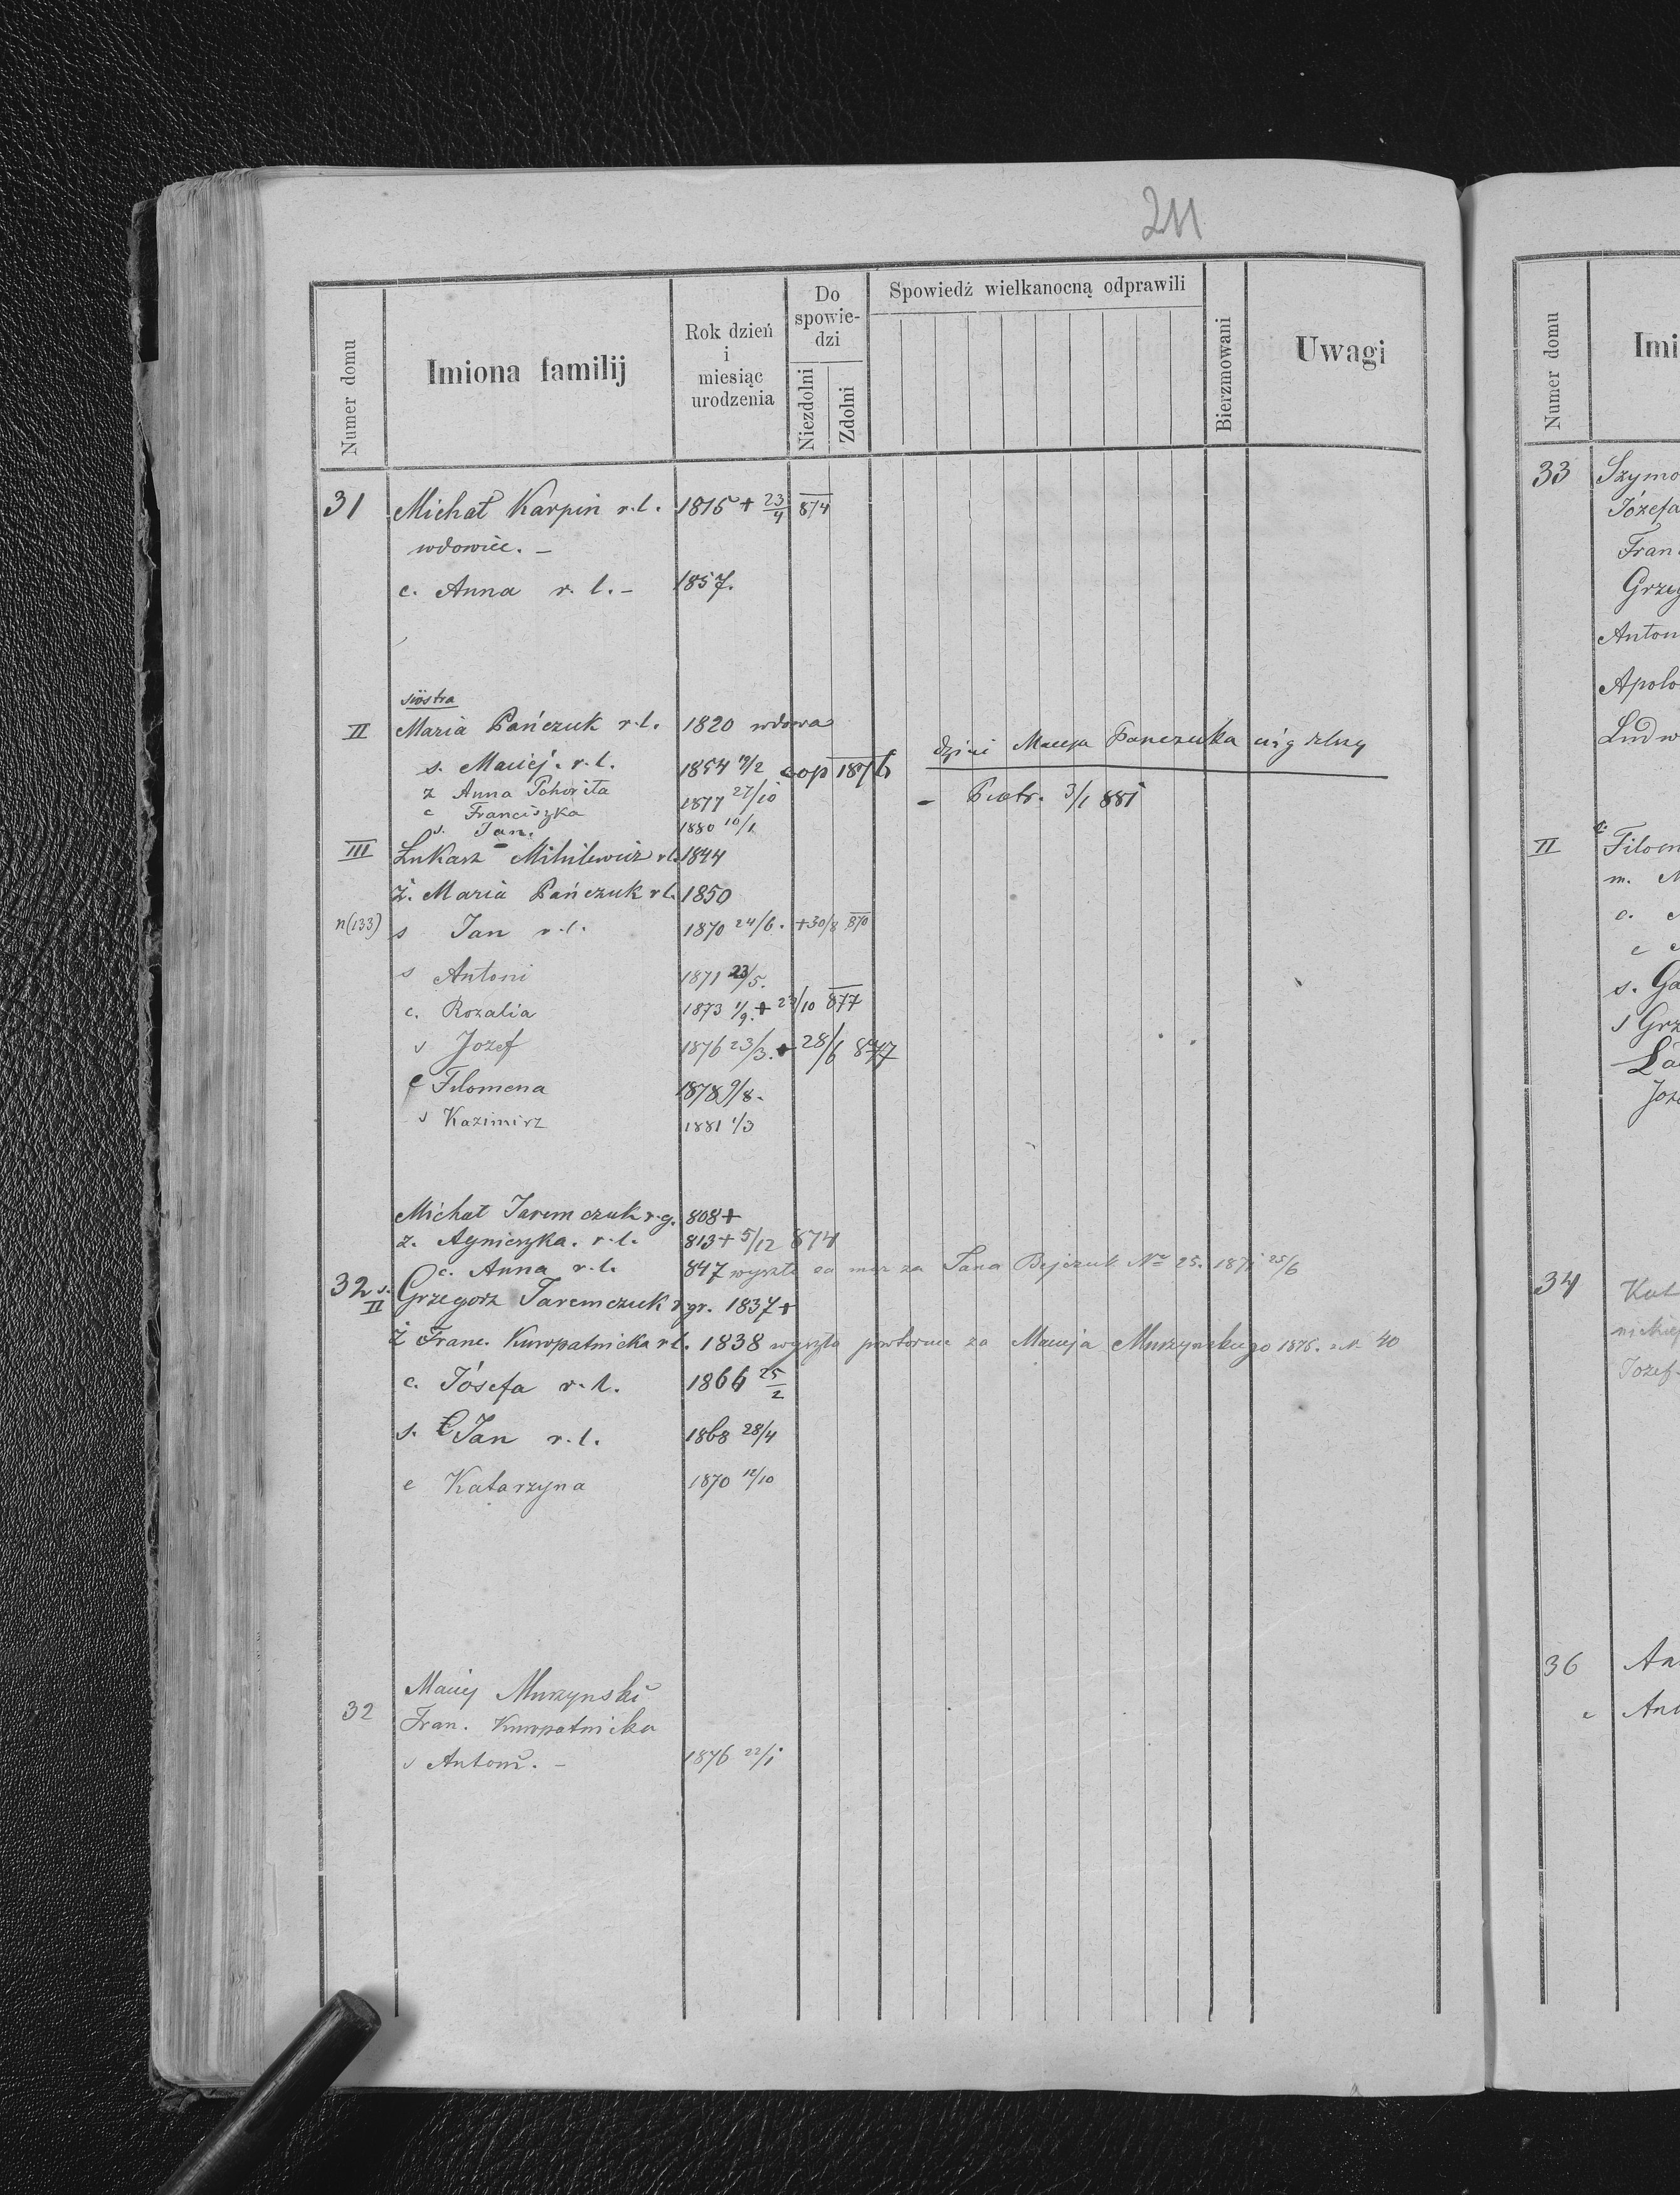 211
Numer domu
Imiona familij
Rok dzień i miesiąc urodzenia
Do spowiedzi
Niezdolni
Zdolni
Spowiedź wielkanocną odprawili
Bierzmowani
Uwagi
31 Michał Karpin r.l. 1815 + 23/4 874
wdowiec. -
c. Anna r. l. - 1857.
siostra
II Maria Pańczuk r.l. 1820 wdowa
s. Maciej. r.l. 1854 /2 cop 1876
dzieci Macieja Panczuka
ż Anna Pohoriła
1877 27/10
- Piotr. 3/1 881
c Franciszka
s. Jan. 1880 10/1
III Łukasz r.l. 1844
Ż. Maria Pańczuk r l. 1850
n(133) s Jan r.l. 1870 24/6. +30/8 870
s Antoni 1871 23/5.
c. Rozalia 1873 1/9. + 23/10 877
s Jozef 1876 23/3. + 28/6 877
c Filomena 1878 9/8.
s Kazimirz 1881 1/3
Michał Jaremczuk r.g. 808 +
ż. Agnieszka. r.l. 813 + 5/12 874
c. Anna r.l. 847 wyszła za mąż za Jana Bejczuk No 25. 1871 25/6
32 s. II Grzegorz Jaremczuk r gr. 1837 +
Ż Franc. Kuropatnicka r l. 1838 wyszła powtornie za Macieja Murzynskiego 1876. 40
c. Józefa r.l. 1866 25/2
s. Jan r.l. 1868 28/4
c Katarzyna 1870 12/10
Maciej Murzynski
32 Fran. Kuropatnicka
s Antoni. - 1876 22/1
Numer domu
Imi
33 Szymo
Józefa
Fran
Grzeg
Anton
Apolo
Ludw
II c. Filom
m. M
c.
c
s. Ga
s Grz
Joz
34 Kat
Jozef
36 An
c An